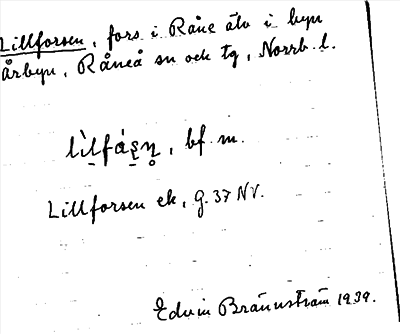 Lillforsen, fors i Råne älv i byn
Årbyn, Råneå sn och tg, Norrb. l.
lìlfáṣṇ̥, bf. m.
Lillforsen ek, G. 37 NV.
Edvin Brännström 1939.